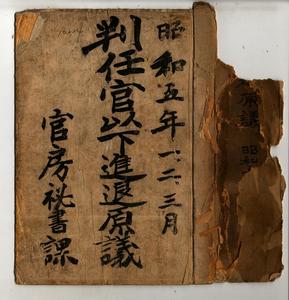 昭和五年 一、二、三月
判任官以下進退原議
官房秘書課
原議 昭和